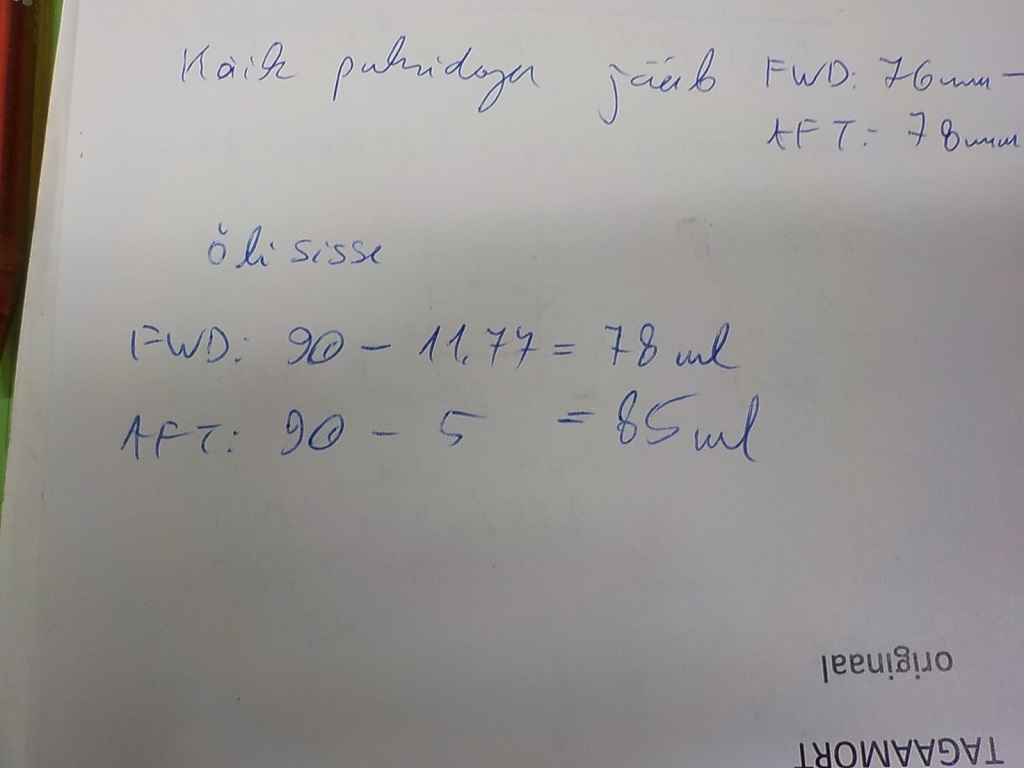 Käik puksidega jääb FWD: 76mm -
AFT: 78mm
õli sisse
FWD: 90 - 11.77 = 78 ml
AFT: 90 - 5 = 85 ml
originaal
TAGAAMORT